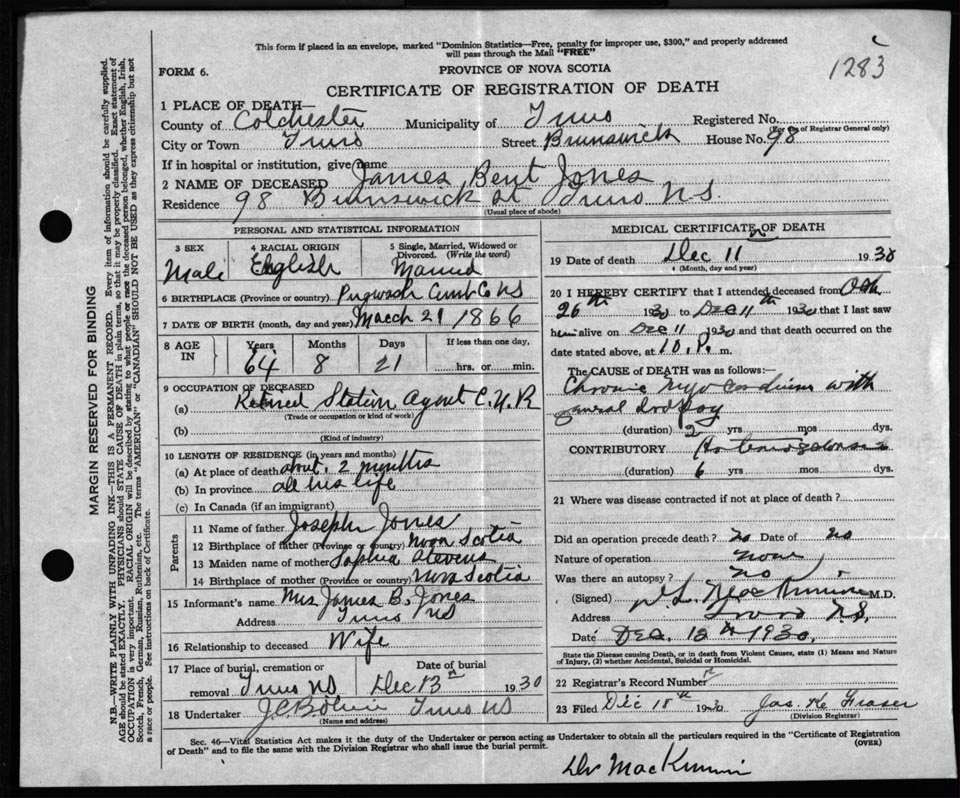 This form if placed in an envelope, marked "Dominion Statistics—Free, penalty for improper use, $300," and properly addressed
will pass through the Mail "FREE"
1283
FORM 6.
PROVINCE OF NOVA SCOTIA
CERTIFICATE OF REGISTRATION OF DEATH
1 PLACE OF DEATH—
County of Colchester Municipality of Truro Registered No.
(For use of Registrar General only)
City or Town Truro Street Brunswick House No. 98
If in hospital or institution, give name
2 NAME OF DECEASED James Bent Jones
Residence 98 Brunswick St Truro N.S.
(Usual place of abode)
PERSONAL AND STATISTICAL INFORMATION
3 SEX 4 RACIAL ORIGIN 5 Single, Married, Widowed or Divorced. (Write the word)
Male English Married
6 BIRTHPLACE (Province or country) Pugwash Cumb Co NS
7 DATE OF BIRTH (month, day and year) March 21 1866
8 AGE IN Years Months Days If less than one day,
64 8 21 hrs. or min.
9 OCCUPATION OF DECEASED
(a) Retired Station Agent C.N.R
(Trade or occupation or kind of work)
(b)
(Kind of industry)
10 LENGTH OF RESIDENCE (in years and months)
(a) At place of death about 2 months
(b) In province all his life
(c) In Canada (if an immigrant)
Parents
11 Name of father Joseph Jones
12 Birthplace of father (Province or country) Nova Scotia
13 Maiden name of mother Sophia Stevens
14 Birthplace of mother (Province or country) Nova Scotia
15 Informant's name Mrs James B. Jones
Address Truro NS
16 Relationship to deceased Wife
17 Place of burial, cremation or removal Truro NS Date of burial Dec 13th 1930
18 Undertaker Truro NS
(Name and address)
MEDICAL CERTIFICATE OF DEATH
19 Date of death Dec 11 1930
(Month, day and year)
20 I HEREBY CERTIFY that I attended deceased from Oct
26th 1930 to Dec 11th 1930 that I last saw
him alive on Dec 11 1930 and that death occurred on
date stated above, at 10. P. m.
The CAUSE of DEATH was as follows:—
Chronic Myocardium with
general dropsy
(duration) 2 yrs mos dys.
CONTRIBUTORY
(duration) 6 yrs mos dys.
21 Where was disease contracted if not at place of death?
Did an operation precede death? no Date of no
Nature of operation none
Was there an autopsy? no
(Signed) MacKinnon M.D.
Address Truro NS.
Date Dec. 12th 1930.
State the Disease causing Death, or in death from Violent Causes, state (1) Means and Nature
of Injury, (2) whether Accidental, Suicidal or Homicidal.
22 Registrar's Record Number
23 Filed Dec 18th 1930 Jas. K. Fraser
(Division Registrar)
Sec. 46—Vital Statistics Act makes it the duty of the Undertaker or person acting as Undertaker to obtain all the particulars required in the "Certificate of Registration
of Death" and to file the same with the Division Registrar who shall issue the burial permit.
(OVER)
Dr MacKinnon
MARGIN RESERVED FOR BINDING
N.B.—WRITE PLAINLY WITH UNFADING INK—THIS IS A PERMANENT RECORD. Every item of information should be carefully supplied.
AGE should be stated EXACTLY. PHYSICIANS should STATE CAUSE OF DEATH in plain terms, so that it may be properly classified. Exact statement of
OCCUPATION is very important. RACIAL ORIGIN will be described by stating to what people or race the deceased person belonged, whether English, Irish,
Scotch, French, German, Russian, Ruthenian, etc. The terms "AMERICAN" or "CANADIAN" SHOULD NOT BE USED as they express citizenship but not
a race or people. See instructions on back of Certificate.